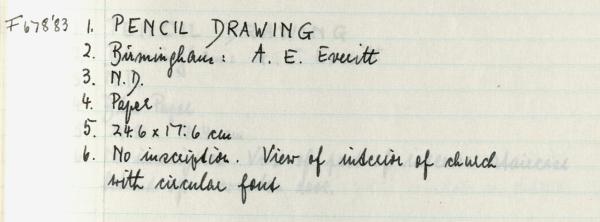 F678'83 1. PENCIL DRAWING
2. Birmingham: A. E. Everitt
3. N.D.
4. Paper
5. 24.6 x 17.6 cm
6. No inscription. View of interior of church
with circular font